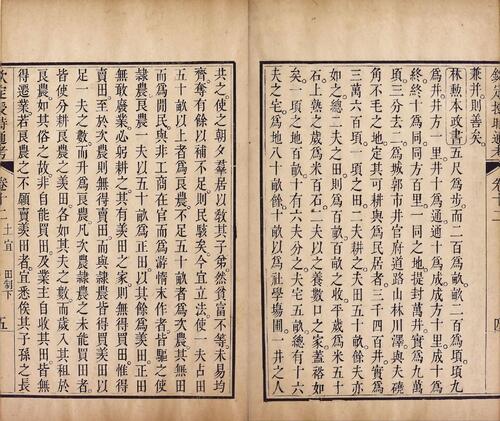 兼并則善矣。
林勳本政書 五尺爲步。而二百爲畝。畝二百爲頃。頃九
爲井。井方一里。井十爲通。通十爲成。成方十里。成十爲
終。終十爲同。同方百里。一同之地。提封萬井。實爲九萬
頃。三分去二。爲城郭市井官府道路山林川澤。與夫磽
角不毛之地。定其可耕與爲民居者。三千四百井。實爲
三萬六百頃。一頃之田。二夫耕之。夫田五十畝。餘夫亦
如之。總二夫之田。則爲百畝。百畝之收。平歲爲米五十
石。上熟之歲。爲米百石。二夫以之養數口之家。蓋裕如
矣。一頃之地百畝。十有六夫分之。夫宅五畝。總有十六
夫之宅。爲地八十畝。餘二十畝。以爲社學場圃。一井之人
共之。使之朝夕羣居。以敎其子弟。然貧富不等。未易均
齊。奪有餘以補不足。則民駭矣。今宜立法。使一夫占田
五十畝以上者爲良農。不足五十畝者爲次農。其無田
而爲閒民。與非工商在官而爲游惰末作者。皆驅之使
隸農。良農一夫以五十畝爲正田。以其餘爲羨田。正田
無敢廢業。必躬耕之。其有羨田之家。則無得買田。惟得
賣田。至於次農。則無得賣田。而與隸農皆得買羨田。以
足一夫之數。而升爲良農。凡次農隸農之未能買田者。
皆使分耕良農之羨田。各如其夫之數。而歲入其租於
良農。如其俗之故。非自能買田。及業主自收其田。皆無
得遷業。若良農之不願賣羨田者。宜悉俟其子孫之長
欽定授時通考 卷十二 土宜 田制下 五